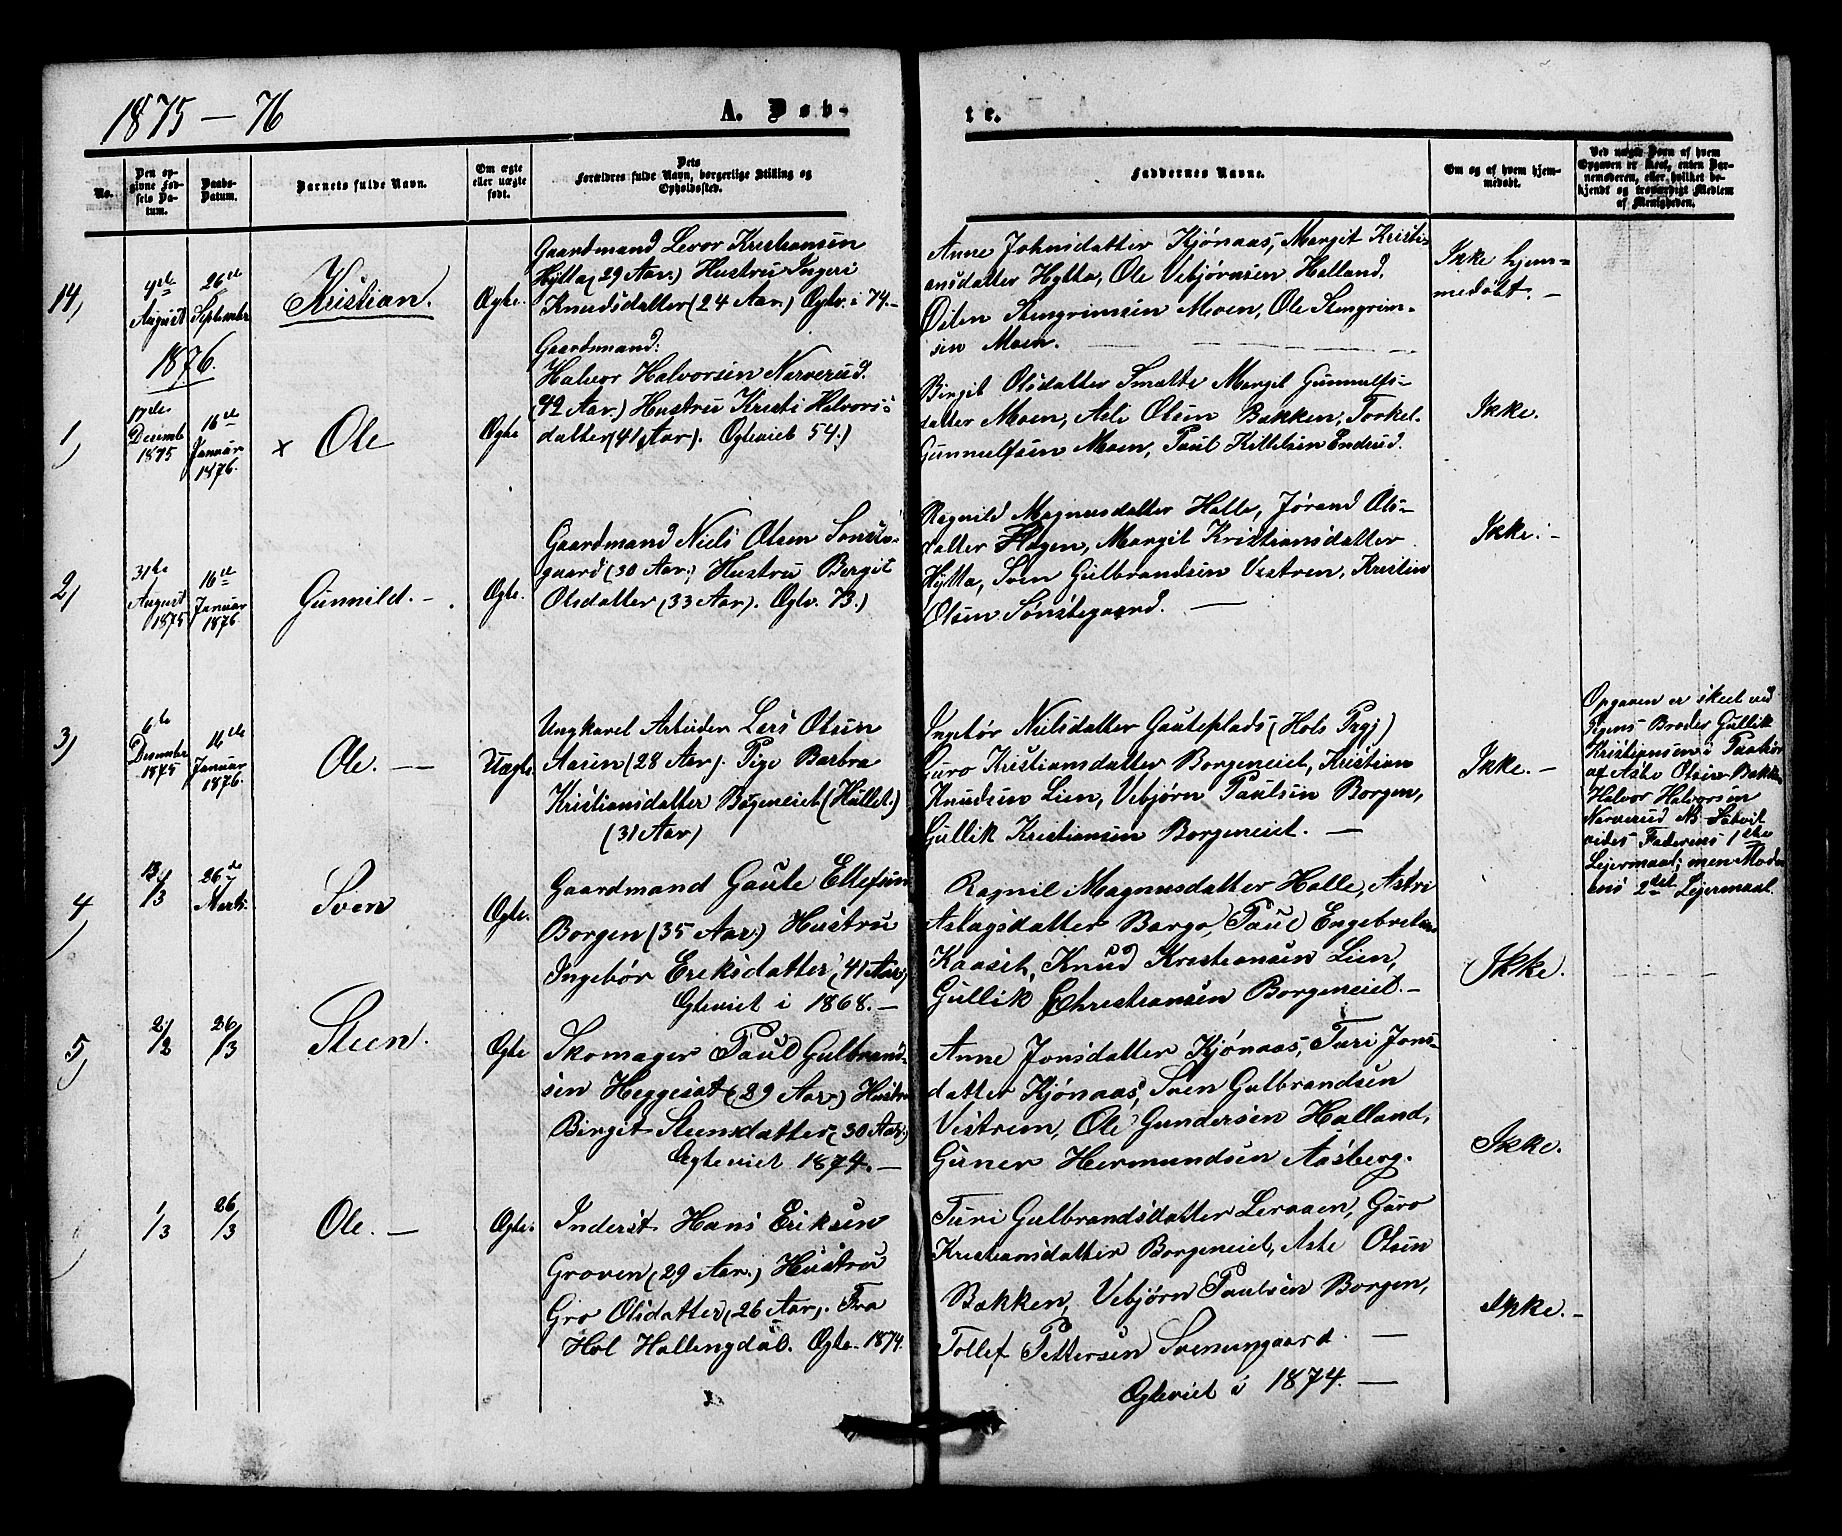 1875 – 76
A. Døb-
te.
No.
Den op-
givne Fød-
sels Da-
tum.
Daabs-
Datum.
Barnets fulde Navn.
Om ægte
eller uægte
født.
Dets
Forældres fulde Navn, borgerlige Stilling og
Opholdssted.
Faddernes Navne.
Om og af hvem hjem-
medøbt.
Ved uægte Børn af hvem
Opgaven er skeet, enten Bar-
nemoderen, eller hvilket be-
kjendt og troværdigt Medlem
af Menigheden.
14)
August
26de
September
Kristian.
Ægte.
Gaardmand Levor Kristiansen
Hytta (29 Aar) Hustru Ingeri
Knudsdatter (24 Aar) Ægtv. i 74. –
Anne Johnsdatter Kjónaas, Margit Kristi-
ansdatter Hytta, Ole Vebjørnsen Halland,
Østen Stengrimsen Moen, Ole Stengrim-
sen Moen.
Ikke hjem-
medøbt. –
1876.
1)
17de
Decembr
1875
16de
Januar
1876.
x Ole
Ægte
Gaardmand:
Halvor Halvorsen Narverud.
(42 Aar) Hustru Kristi Halvors-
datter (41 Aar). Ægteviet 54.)
Birgit Olsdatter Smætte Margit Gunnulfs-
datter Moen, Asle Olsen Bakken, Torkel
Gunnulfsen Moen, Paul Kittelsen Enderud.
Ikke.
2)
31te
August
1875
16de
Januar
1876.
Gunnild. –
Ægte.
Gaardmand Niels Olsen Sønste-
gaard (30 Aar) Hustru Bergit
Olsdatter (33 Aar). Ægtv. 73.)
Ragnild Magnusdatter Halle, Jørand Ols-
datter Hagen, Margit Kristiansdatter
Hytta, Sven Gulbrandsen Vestren, Kristen
Olsen Sønstegaard. –
Ikke. –
3)
6te
Decembr
1875
16de
Januar
1876.
Ole. –
Uægte.
Ungkarel Arbeider Lars Olsen
Aasen (28 Aar). Pige Barbra
Kristiansdatter Bøgeneiet (Hallet.)
(31 Aar)
Ingebør Nielsdatter Gauteplads (Hols Prgj)
Guro Kristiansdatter Borgeneiet, Kristian
Knudsen Lien, Vebjørn Paulsen Borgen,
Gullik Kristiansen Borgeneiet. –
Ikke. –
Opgaven er skeet ved
Pigens Broder Gullik
Kristiansen i Paahør
af Asle Olsen Bakken
Halvor Halvorsen
Narverud NB. Saavit
vides Faderens 1ste
Leiermaal; men Moder-
ens 2det Leiermaal.
4)
13/3
26de
Marts
Sven
Ægte.
Gaardmand Gaute Ellefsen
Borgen (35 Aar) Hustru
Ingebør Eriksdatter (41 Aar)
Ægteviet i 1868. –
Ragnil Magnusdatter Halle, Astri
Aslagsdatter Borge, Paul Engebretsen
Kaaset, Knud Kristiansen Lien,
Gullik Christiansen Borgeneiet –
Ikke.
5)
2/2
26/3
Steen.
Ægte
Skomager Paul Gulbrand-
sen Heggeset (29 Aar) Hustru
Birgit Steensdatter (30 Aar)
Ægteviet 1874. –
Anne Jonsdatter Kjónaas, Turi Jons-
datter Kjónaas, Sven Gulbrandsen
Vestren, Ole Gundersen Halland,
Guner Hermundsen Aasberg.
Ikke.
1/3
26/3
Ole. –
Ægte.
Inderst Hans Eriksen
Groven (29 Aar) Hustru
Gro Olsdatter (26 Aar). Fra
Hol Hallingdal. Ægte. 1874.
Turi Gulbrandsdatter Leraaen, Guro
Kristiansdatter Borgeneiet, Asle Olsen
Bakken, Vebjørn Paulsen Borgen,
Tollef Pettersen Svenungaard. –
Ægteviet i 1874. –
Ikke. –